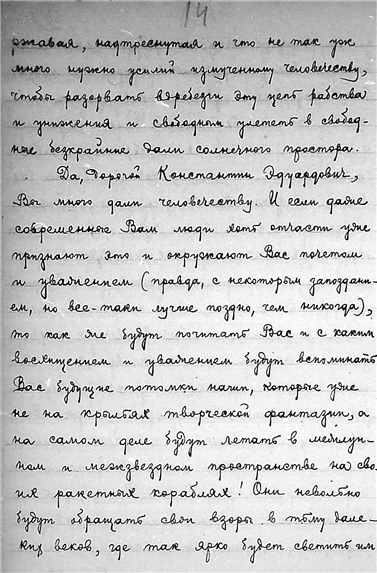 14
ржавая, надтреснутая и что не так уж
много нужно усилий измученному человечеству,
чтобы разорвать вдребезги эту цепь рабства
и унижения и свободным улететь в свобод-
ные безкрайние дали солнечного простора.
Да, дорогой Константин Эдуардович,
Вы много дали человечеству. И если даже
современные Вам люди хотя отчасти уже
признают это и окружают Вас почетом
и уважением (правда, с некоторым запоздани-
ем, но все-таки лучше поздно, чем никогда),
то как же будут почитать Вас и с каким
восхищением и уважением будут вспоминать
Вас будущие потомки наши, которые уже
не на крыльях творческой фантазии, а
на самом деле будут летать в межплан-
ном и межзвездном пространстве на сво-
их ракетных кораблях! Они невольно
будут обращать свои взоры в тьму дале-
ких веков, где так ярко будет светить им